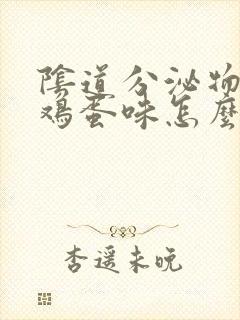 陰道分泌物
鸡蛋味怎麼
杏遥未晚